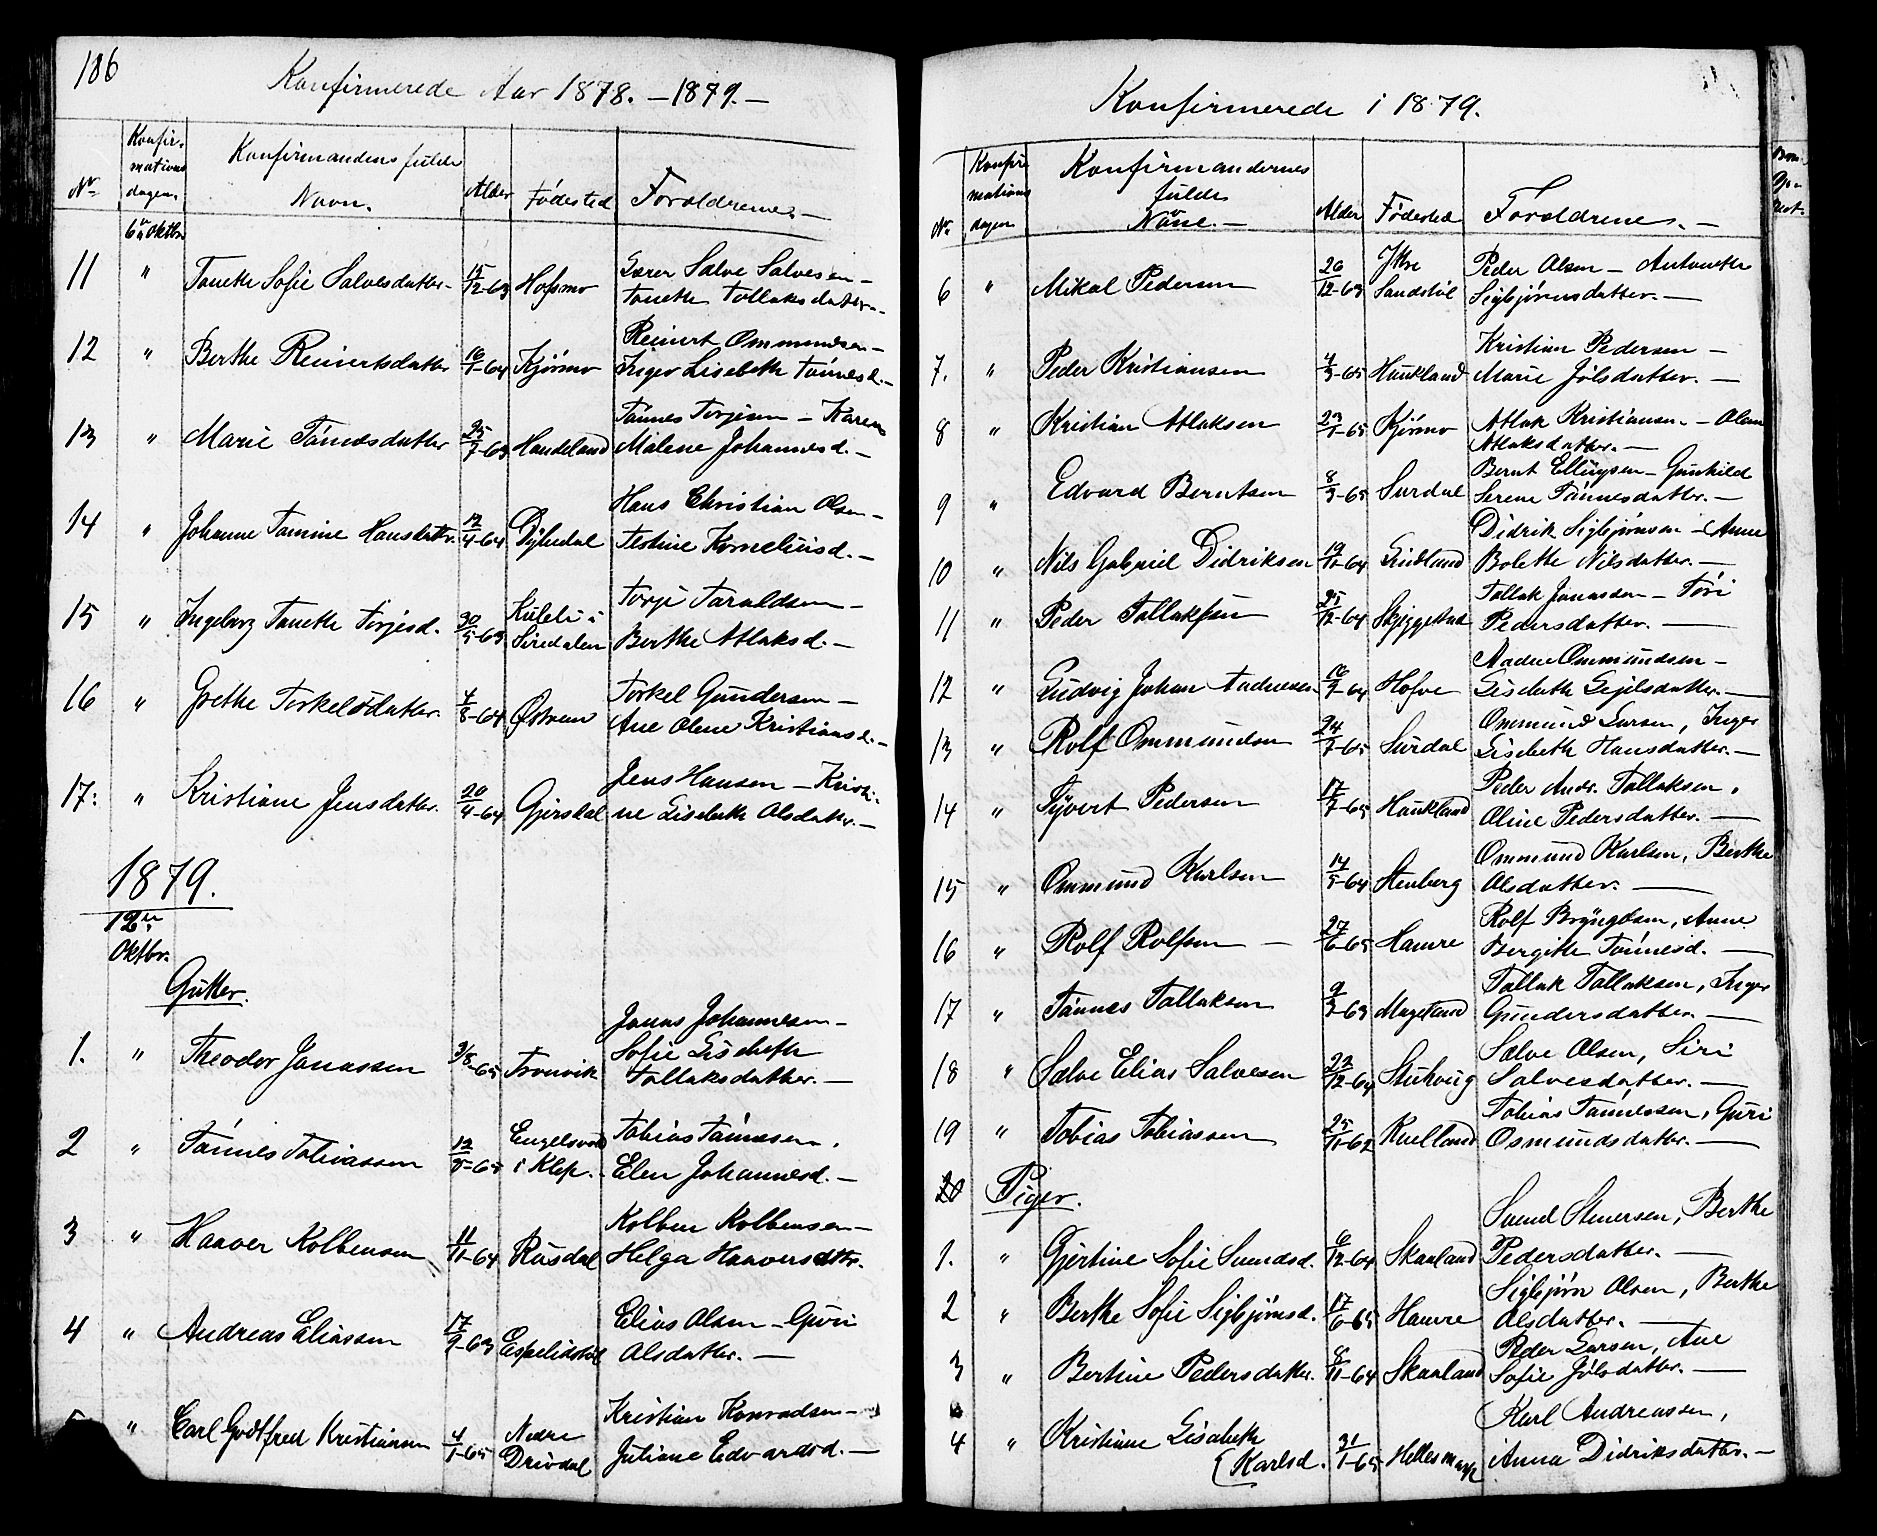 186
Konfirmerede Aar 1878. – 1879. –
No Konfirmationsdagen. Konfirmandens fulde Navn. Alder Fødested Foroldrene. –
6te Oktbr
11 " Toneth Sofie Salvesdatter – 15/12-63 Hofsmo Lærer Salve Salvesen – Toneth Tollaksdatter. –
12 " Berthe Reinertsdatter 16/1-64 Kjørmo Reinert Ommundsen – Inger Lisebeth Tønnesd. –
13 " Marie Tønnesdatter 25/7-63 Haudeland Tønnes Torjesen – Karen Malene Johannesd. –
14 " Johanne Tomine Hansdatter. 12/4-64 Dybedal Hans Christian Olsen – Testine Korneliusd. –
15 " Ingeborg Toneth Torjesd. 30/5-63 i Siredalen Torje Taraldsen – Berthe Atlaksd. –
16 " Grethe Torkelsdatter. 4/8-64 Østreim Torkel Gundersen – Ane Olene Kristiansd. –
17: " Kristiane Jensdatter. 20/4-64 Gjersdal Jens Hansen – Kristine Lisebeth Olsdatter. –
1879.
12te Oktbr.
Gutter.
1. " Theodor Jonassen 3/8-65 Tronvik Jonas Johannesen – Sofie Lisebeth Tollaksdatter. –
2 " Tønnes Tobiassen 12/5-65 i Klep. Tobias Tønnesen, Elen Johannesd. –
3 " Haaver Kolbensen 11/11-64 Rusdal Kolben Kolbensen – Helga Haaversdttr.
4 " Andreas Eliassen 17/9-63 Espelidstøl Elias Olsen – Guri Olsdatter. –
5 " Carl Godtfred Kristiansen 4/1-65 Nedre Drivdal Kristian Konradsen – Juliane Edvardsd. –
Konfirmerede i 1879.
No Konfirmationsdagen Konfirmandernes fulde Navne. – Alder Fødested Foroldrene. –
6 " Mikal Pedersen 26/12-63 Ytre Sandstøl Peder Olsen – Antoneth Sigbjørnsdatter. –
7. " Peder Kristiansen 4/3-65 Haukland Kristian Pedersen – Marie Jølsdatter. –
8 " Kristian Atlaksen 23/1-65 Kjørmo Atlak Kristiansen. – Olene Atlaksdatter. –
9 " Edvard Berntsen 8/3-65 Surdal Bernt Ellingsen – Gunhild Serene Tønnesdatter. –
10 " Nils Gabriel Didriksen 19/11-64 Lindland Didrik Sigbjørnsen – Anne Bolette Nilsdatter. –
11 " Peder Tollaksen 25/12-64 Skjeggestad Tollak Jonassen – Tori Pedersdatter. –
12 " Ludvig Johan Aadnesen 16/7-64 Hofve Aadne Ommundsen – Lisebeth Lejelsdatter. –
13 " Rolf Ommundsen 24/7-65 Surdal Ommund Larsen, Inger Lisebeth Hansdatter. –
14 " Sijvert Pedersen 17/7-65 Haukland Peder Andr. Tollaksen, Oline Pedersdatter. –
15 " Ommund Karlsen 14/5-64 Stenberg Ommund Karlsen, Berthe Olsdatter. –
16 " Rolf Rolfsen – 27/6-65 Hamre Rolf Bryngelsen, Anne Bergithe Tønnesd. –
17 " Tønnes Tollaksen 9/3-63 Mogeland Tollak Tollaksen, Inger Gundersdatter. –
18 " Salve Elias Salvesen 22/12-64 Salve Olsen, Siri Salvesdatter. –
19 " Tobias Tobiassen 25/11-62 Ruelland Tobias Tønnessen, Guri Osmundsdatter. –
20 Piger.
1. " Gjertine Sofie Svendsd. 6/12-64 Skaaland Svend Stenersen, Berthe Pedersdatter. –
2 " Berthe Sofie Sigbjørnsd. 17/6-65 Hamre Sigbjørn Olsen, Berthe Olsdatter. –
3 " Bertine Pedersdatter. 8/11-64 Skaaland Peder Larsen, Ane Sofie Jølsdatter. –
4 " Kristiane Lisebeth Karlsd. 31/1-65 Karl Andreassen, Anna Didriksdatter. –